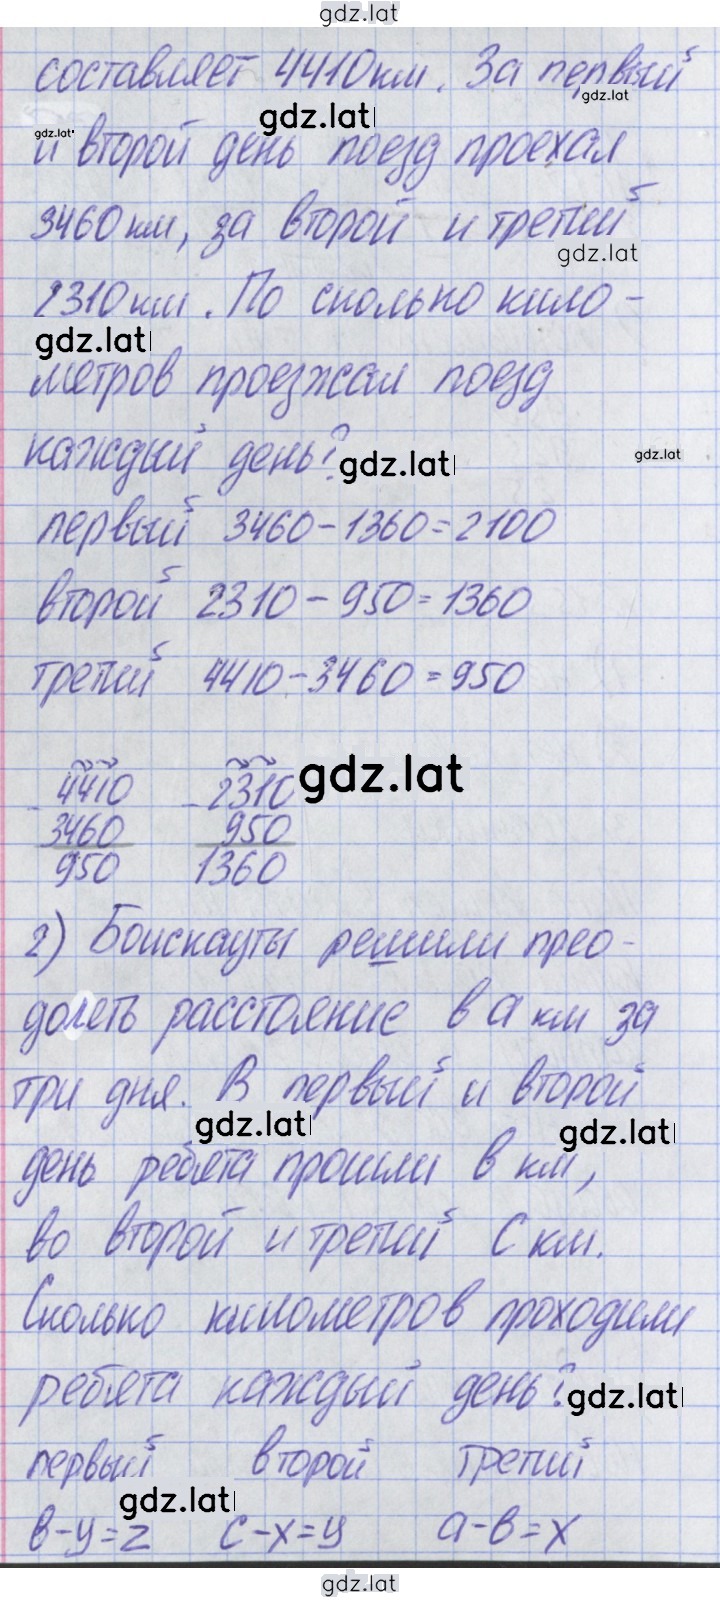 gdz.lat
составляет 4410 км. За первый
gdz.lat
gdz.lat
gdz.lat
и второй день поезд проехал
3460 км, за второй и третий
gdz.lat
2310 км. По сколько кило-
gdz.lat
метров проезжал поезд
каждый день?
gdz.lat
gdz.lat
первый 3460-1360=2100
второй 2310-950=1360
третий 4410-3460=950
gdz.lat
-4410 -2310
3460 950
950 1360
2) Бойскауты решили прео-
долеть расстояние в a км за
три дня. В первый и второй
gdz.lat
gdz.lat
день ребята прошли в км,
во второй и третий С км.
Сколько километров проходили
ребята каждый день?
gdz.lat
первый второй третий
gdz.lat
в-y=z c-x=y a-в=x
gdz.lat